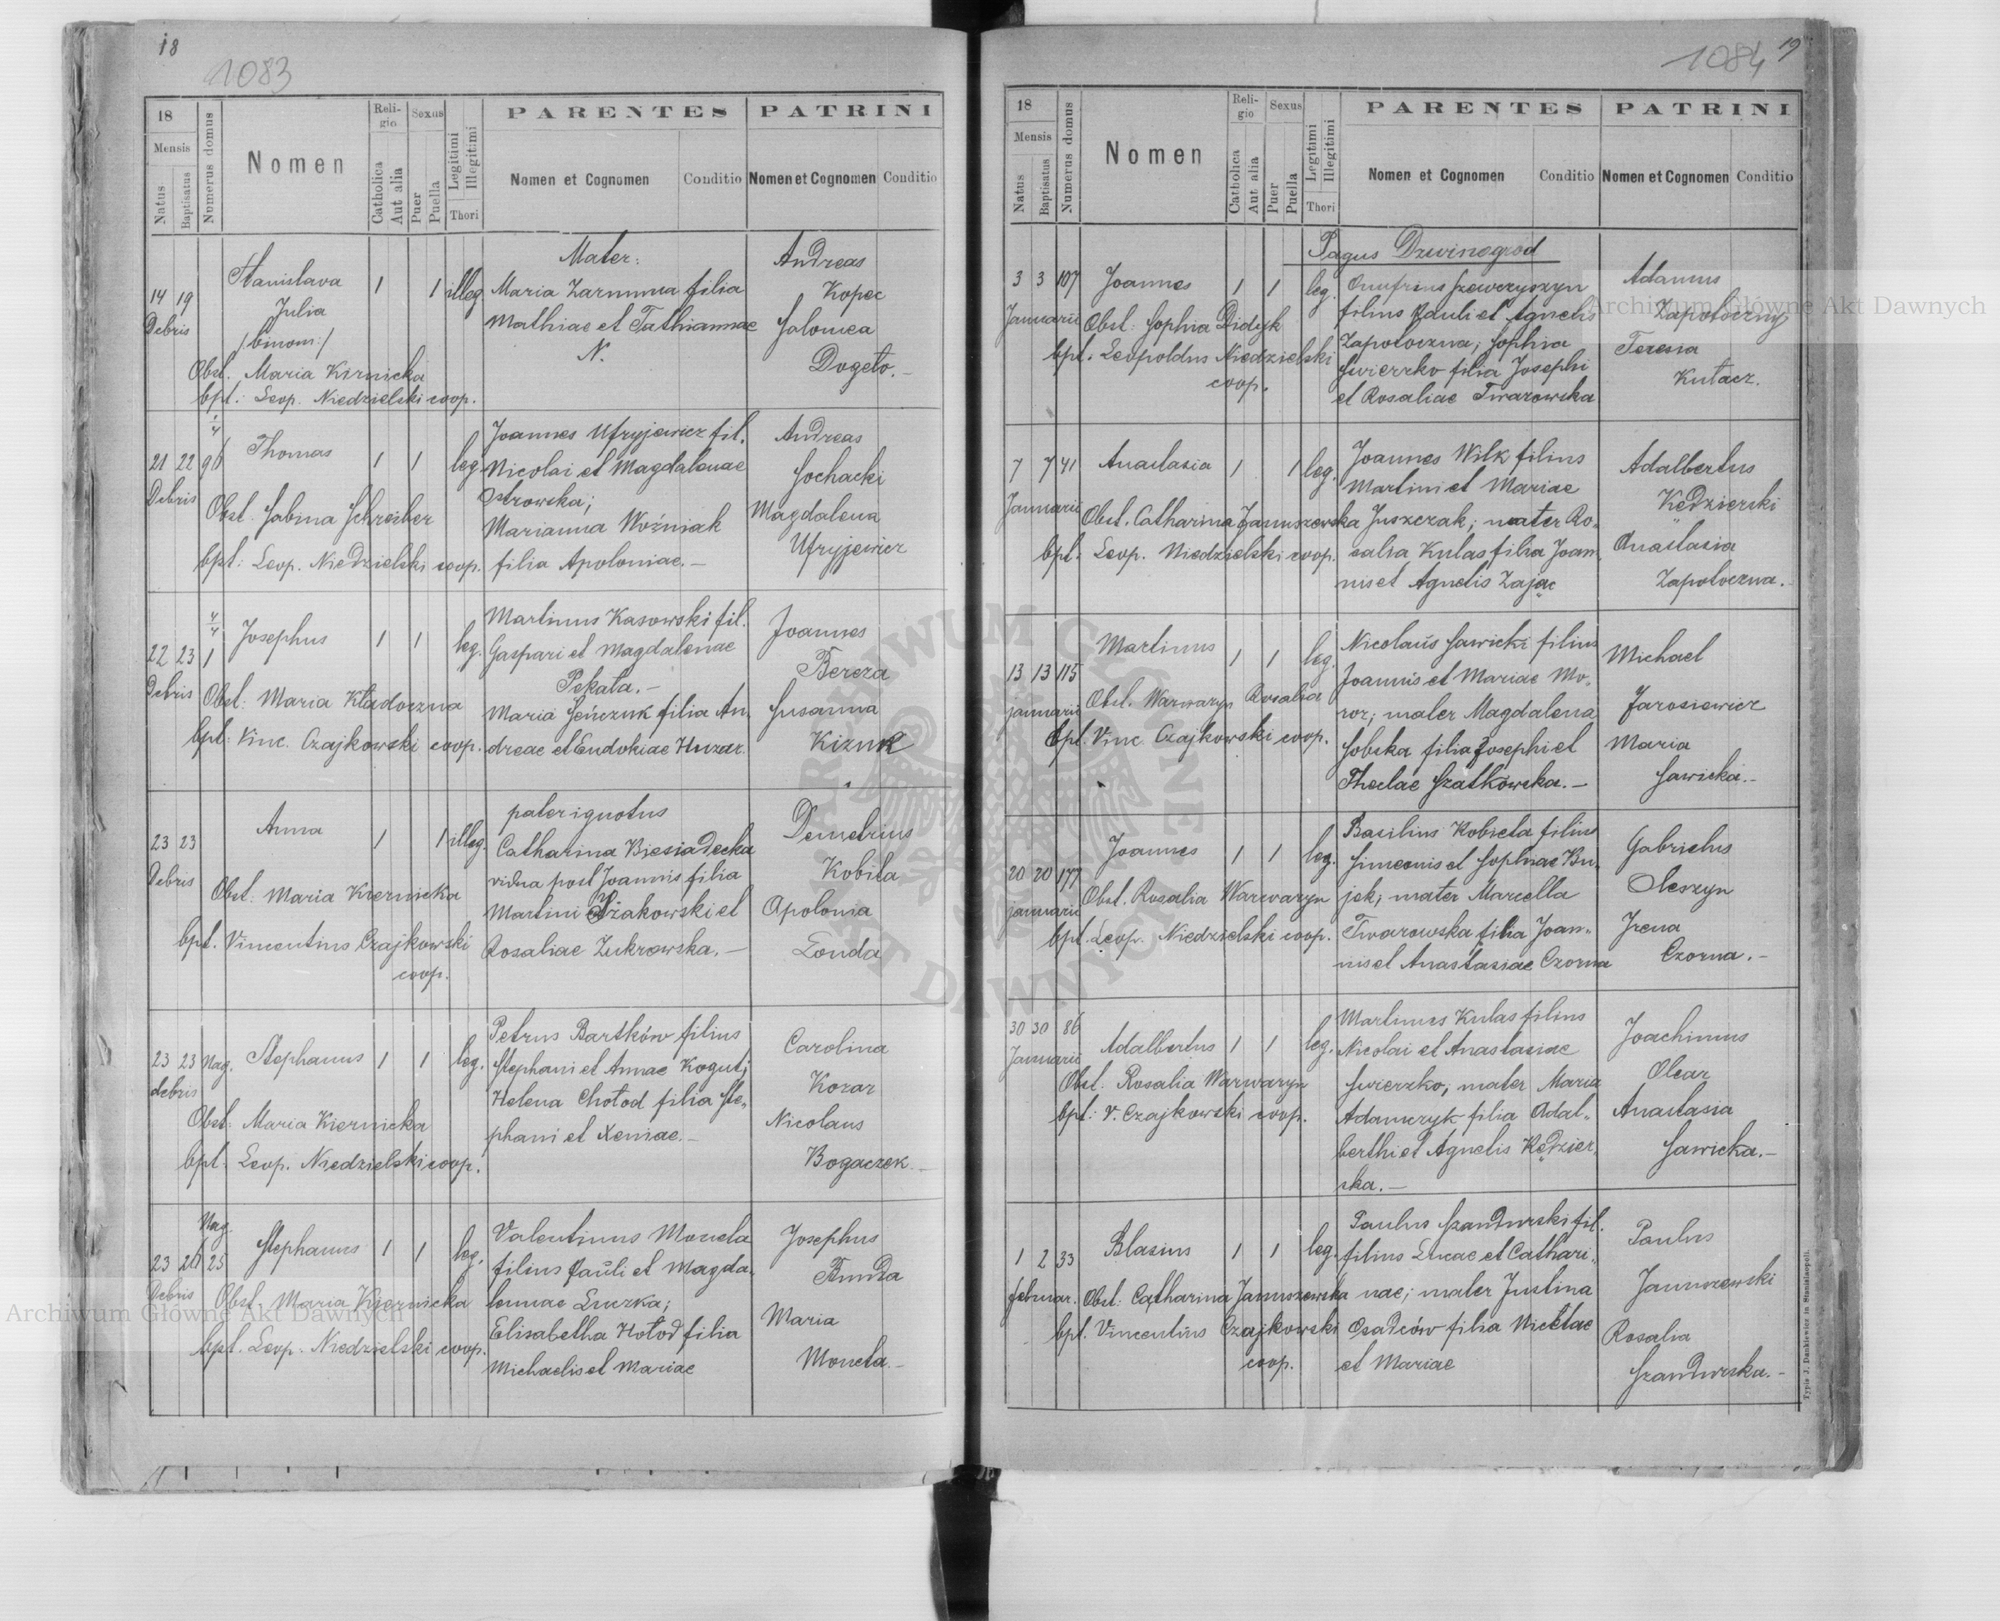 18
1083
18
Mensis
Natus
Baptisatus
Numerus domus
Nomen
Religio
Catholica
Aut alia
Sexus
Puer
Puella
Legitimi
Illegitimi
Thori
PARENTES
Nomen et Cognomen
Conditio
PATRINI
Nomen et Cognomen
Conditio
14 19 Debris
Stanislava
Julia
/binom:/
1 1 illeg.
Obst. Maria Kirnicka
bpt.: Leop. Niedzielski coop.
Mater:
Maria Zarumna filia
Mathiae et Tathiannae
N.
Andreas
Kopec
Salomea
Dogeto.-
21 22 96 Debris
Thomas
1 1 leg.
Obst. Sabina Schreiber
bpt: Leop. Niedzielski coop.
Joannes Ufryjewicz fil.
Nicolai et Magdalenae
Ostrowska;
Marianna Woźniak
filia Apoloniae.-
Andreas
Sochacki
Magdalena
Ufryjewicz
22 23 1 Debris
Josephus
1 1 leg.
Obst: Maria Kładoczna
bpt: Vinc. Czajkowski coop.
Martinus Kasowski fil.
Gaspari et Magdalenae
Pekata.-
Maria Seńczuk filia An.
dreae et Eudokiae Huzar.
Joannes
Bereza
Susanna
Kiznk
23 23 Debris
Anna
1 1 illeg.
Obst: Maria Kiernicka
bpt. Vincentius Czajkowski
coop.
pater ignotus
Catharina Biesiadecka
vidua post Joannis filia
Martini Iżakowski et
Rosaliae Zukrowska.-
Demetrius
Kobita
Apolonia
Londa
23 23 Nag. debris
Stephanus
1 1 leg.
Obst: Maria Kiernicka
bpt. Leop. Niedzielski coop.
Petrus Bartków filius
Stephani et Annae Kogut;
Helena Chołod filia Ste-
phani et Xeniae.-
Carolina
Kozar
Nicolaus
Bogaczek.-
23 26 Nag. 25 Debris
Stephanus
1 1 leg.
Obst. Maria Kiernicka
bpt. Leop. Niedzielski coop.
Valentinus Moneta
filius Pauli et Magda-
lennae Luczka;
Elisabetha Hołod filia
Michaelis et Mariae
Josephus
Bunda
Maria
Moneta.-
1084
19
18
Mensis
Natus
Baptisatus
Numerus domus
Nomen
Religio
Catholica
Aut alia
Sexus
Puer
Puella
Legitimi
Illegitimi
Thori
PARENTES
Nomen et Cognomen
Conditio
PATRINI
Nomen et Cognomen
Conditio
Pagus Dzwinogrod
3 3 107 Januarii
Joannes
1 1 leg.
Obst: Sophia Didyk
bpt. Leopoldus Niedzielski
coop.
Onufrius Szewczyszyn
filius Pauli et Agnetis
Zapotoczna; Sophia
Swierzko filia Josephi
et Rosaliae Twarowska
Adamus
Zapotoczny
Teresia
Kutacz.
7 7 41 Januarii
Anastasia
1 1 leg.
Obst. Catharina Januszewska
bpt: Leop. Niedzielski coop.
Joannes Wilk filius
Martini et Mariae
Juszczak; mater Ro-
salia Kulas filia Joan-
nis et Agnetis Zając
Adalbertus
Kędzierski
Anastasia
Zapotoczna.
13 13 115 januarii
Martinus
1 1 leg.
Obst. Warwaryn Rosalia
bpt. Vinc. Czajkowski coop.
Nicolaus Sawicki filius
Joannis et Mariae Mo-
roz; mater Magdalena
Sobska filia Josephi et
Theclae Szatkowska.-
Michael
Jarosiewicz
Maria
Sawicka.-
20 20 177 januarii
Joannes
1 1 leg.
Obst. Rosalia Warwaryn
bpt. Leop. Niedzielski coop.
Basilius Kobieta filius
Simeonis et Sophiae Bu-
jek; mater Marcella
Twarowska filia Joan-
nis et Anastasiae Czorna
Gabrielus
Oleszyn
Irena
Czorna.-
30 30 86 Januarii
Adalbertus
1 1 leg.
Obst. Rosalia Warwaryn
bpt: V. Czajkowski coop.
Martinus Kulas filius
Nicolai et Anastasiae
Swierzko; mater Maria
Adamczyk filia Adal-
berthi et Agnetis Kędzier-
ska.-
Joachimus
Olear
Anastasia
Sawicka.-
1 2 33 februar.
Blasius
1 1 leg.
Obst: Catharina Januszewska
bpt. Vincentius Czajkowski
coop.
Paulus Szandurski fil.
filius Lucae et Cathari-
nae; mater Justina
Osadców filia Micitae
et Mariae
Paulus
Januszewski
Rosalia
Szandurska.-
Typis J. Dankiewicz in Stanislaopoli.
Archiwum Główne Akt Dawnych
Archiwum Główne Akt Dawnych
ARCHIWUM GŁÓWNE AKT DAWNYCH